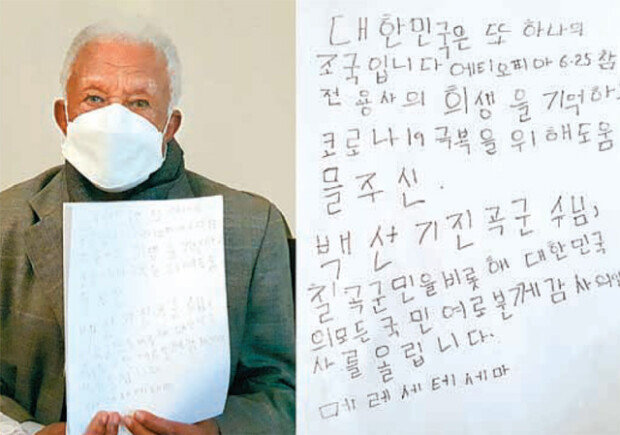 대한민국은 또 하나의
조국입니다 에티오피아 6·25 참
전 용사의 희생을 기억하
코로나19 극복을 위해 도움
믈 주신.
백선기 진곡군 수님,
칠곡군민을 비롯해 대한민국
의 모든 국민 여로분께 감사의 인
사를 올립니다.
메레세 테세마